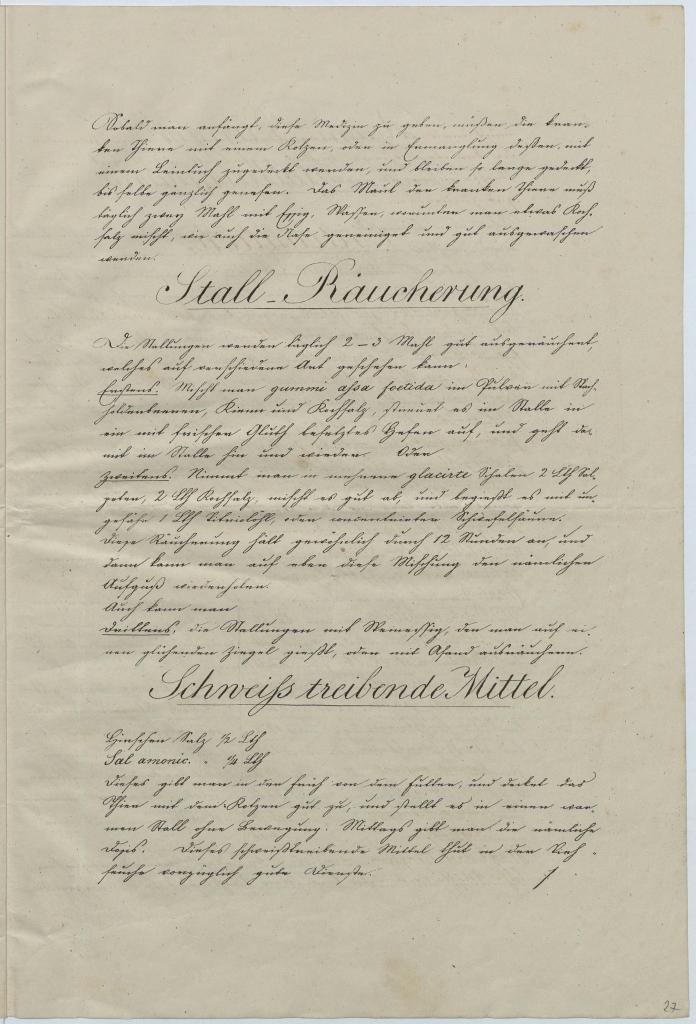 Sobald man anfängt, diese Medizin zu geben, müßen die kran-
ken Thiere mit einem Kotzen, oder in Ermanglung deßen mit
einem Leintuch zugedeckt werden, und bleiben so lange gedeckt,
bis selbe gänzlich genesen. Das Maul der kranken Thiere muß
täglich zwey Mahl mit Eßig, Wasser, worunter man etwas Koch-
salz mischt, wie auch die Nase gereiniget und gut ausgewaschen
werden.
Stall-Räucherung.
Die Stallungen werden täglich 2-3 Mahl gut ausgeräuchert,
welches auf verschiedene Art geschehen kann:
Erstens: Mischt man gummi assa foetida im Pulver mit Wach-
holderbeeren, Kienn und Kochsalz, streuet es im Stalle in
ein mit frischer Gluth besetztes Hefen auf, und geht da-
mit im Stalle hin und wieder. Oder
Zweitens: Nimmt man in mehrere glacirte Schalen 2 Lth Sal-
peter, 2 Lth Kochsalz, mischt es gut ab, und begießt es mit un-
gefähr 1 Lth Vitriolöhl, oder concentrirter Schwefelsäure.
Diese Räucherung hält gewöhnlich durch 12 Stunden an, und
dann kann man auf eben diese Mischung den nämlichen
Aufguß wiederholen.
Auch kann man
Drittens: die Stallungen mit Weinessig, den man auf ei-
nen glühenden Ziegel gießt, oder mit Asand ausräuchern.
Schweiss treibende Mittel.
Hirschen Salz 1/2 Lth
Sal amonic. " 1/4 Lth
Dieses gibt man in der früh vor dem Futter, und decket das
Thier mit dem Kotzen gut zu, und stellt es in einen war-
men Stall ohne Bewegung. Mittags gibt man die nämliche
Dosis. Dieses schweißtreibende Mittel thut in der Vieh-
seuche vorzüglich gute Dienste.
27